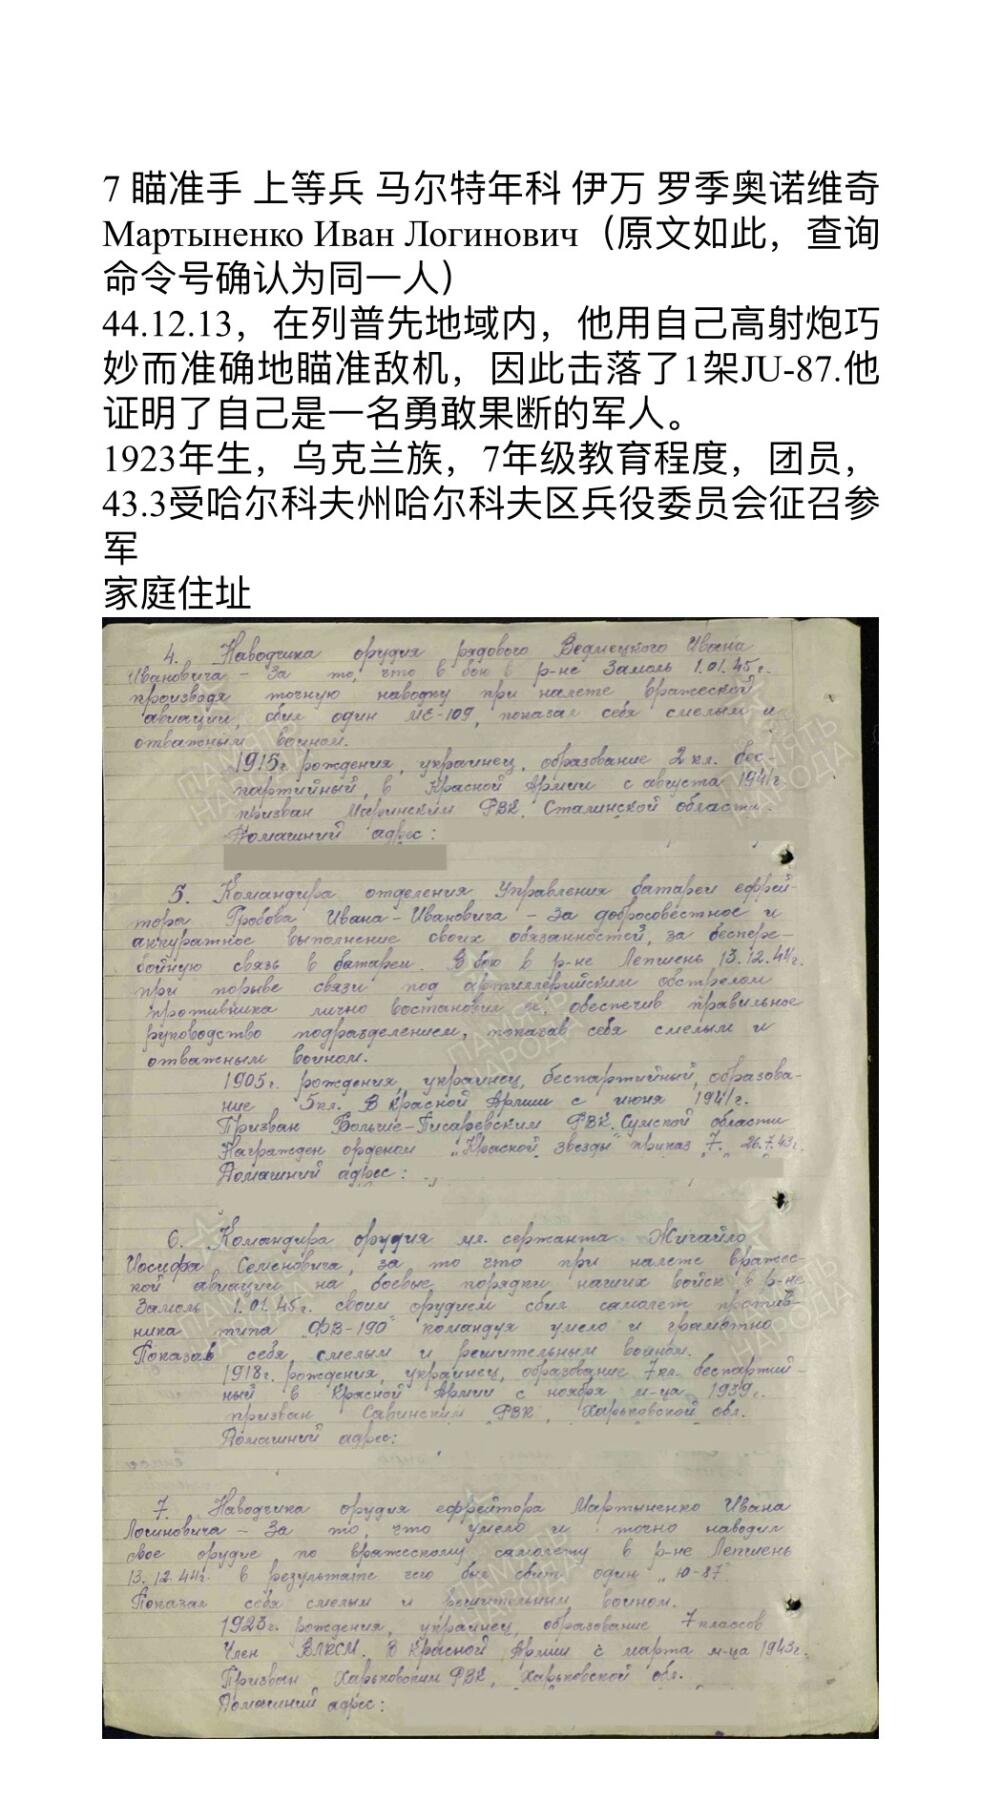 7 瞄准手 上等兵 马尔特年科 伊万 罗季奥诺维奇
Мартыненко Иван Логинович（原文如此，查询
命令号确认为同一人）
44.12.13，在列普先地域内，他用自己高射炮巧
妙而准确地瞄准敌机，因此击落了1架JU-87.他
证明了自己是一名勇敢果断的军人。
1923年生，乌克兰族，7年级教育程度，团员，
43.3受哈尔科夫州哈尔科夫区兵役委员会征召参
军
家庭住址
4. Наводчика орудия рядового Ведмецкого Ивана
Ивановича – За то, что в бою в р-не Замоль 1.01.45г.
производя точную наводку при налете вражеской
авиации, сбил один МЕ-109, показал себя смелым и
отважным воином.
1915г. рождения, украинец, образование 2 кл. бес-
партийный, в Красной Армии с августа 1941г.
призван Маринским РВК, Сталинской области.
Домашний адрес:
5. Командира отделения Управления батареи ефрей-
тора Гробова Ивана-Ивановича – За добросовестное и
аккуратное выполнение своих обязанностей, за беспере-
бойную связь в батареи. В бою в р-не Лепшень 13.12.44г.
при порыве связи под артиллерийским обстрелом
противника лично востановил и, обеспечив правильное
руководство подразделением, показав себя смелым и
отважным воином.
1905г. рождения, украинец, беспартийный, образова-
ние 5 кл. В Красной Армии с июня 1941г.
Призван Больше-Писаревским РВК. Сумской области
Награжден орденом „Красной звезды" приказ 7. 26.7.43г.
Домашний адрес:
6. Командира орудия мл. сержанта Жигайло
Иосифа Семеновича, за то что при налете вражес-
кой авиации на боевые порядки наших войск в р-не
Замоль 1.01.45г. своим орудием сбил самолет против-
ника типа „ФВ-190" командуя умело и грамотно
Показав себя смелым и решительным воином.
1918г. рождения, украинец, образование 7 кл. беспартий-
ный в Красной Армии с ноября м-ца 1939г.
призван Савинским РВК, Харьковской обл.
Домашний адрес:
7. Наводчика орудия ефрейтора Мартыненко Ивана
Логиновича – За то, что умело и точно наводил
свое орудие по вражескому самолету в р-не Лепшень
13.12.44г. в результате чего был сбит один „Ю-87"
Показал себя смелым и решительным воином.
1923г. рождения, украинец, образование 7 классов
Член ВЛКСМ. В Красной Армии с марта м-ца 1943г.
Призван Харьковским РВК, Харьковской обл.
Домашний адрес: